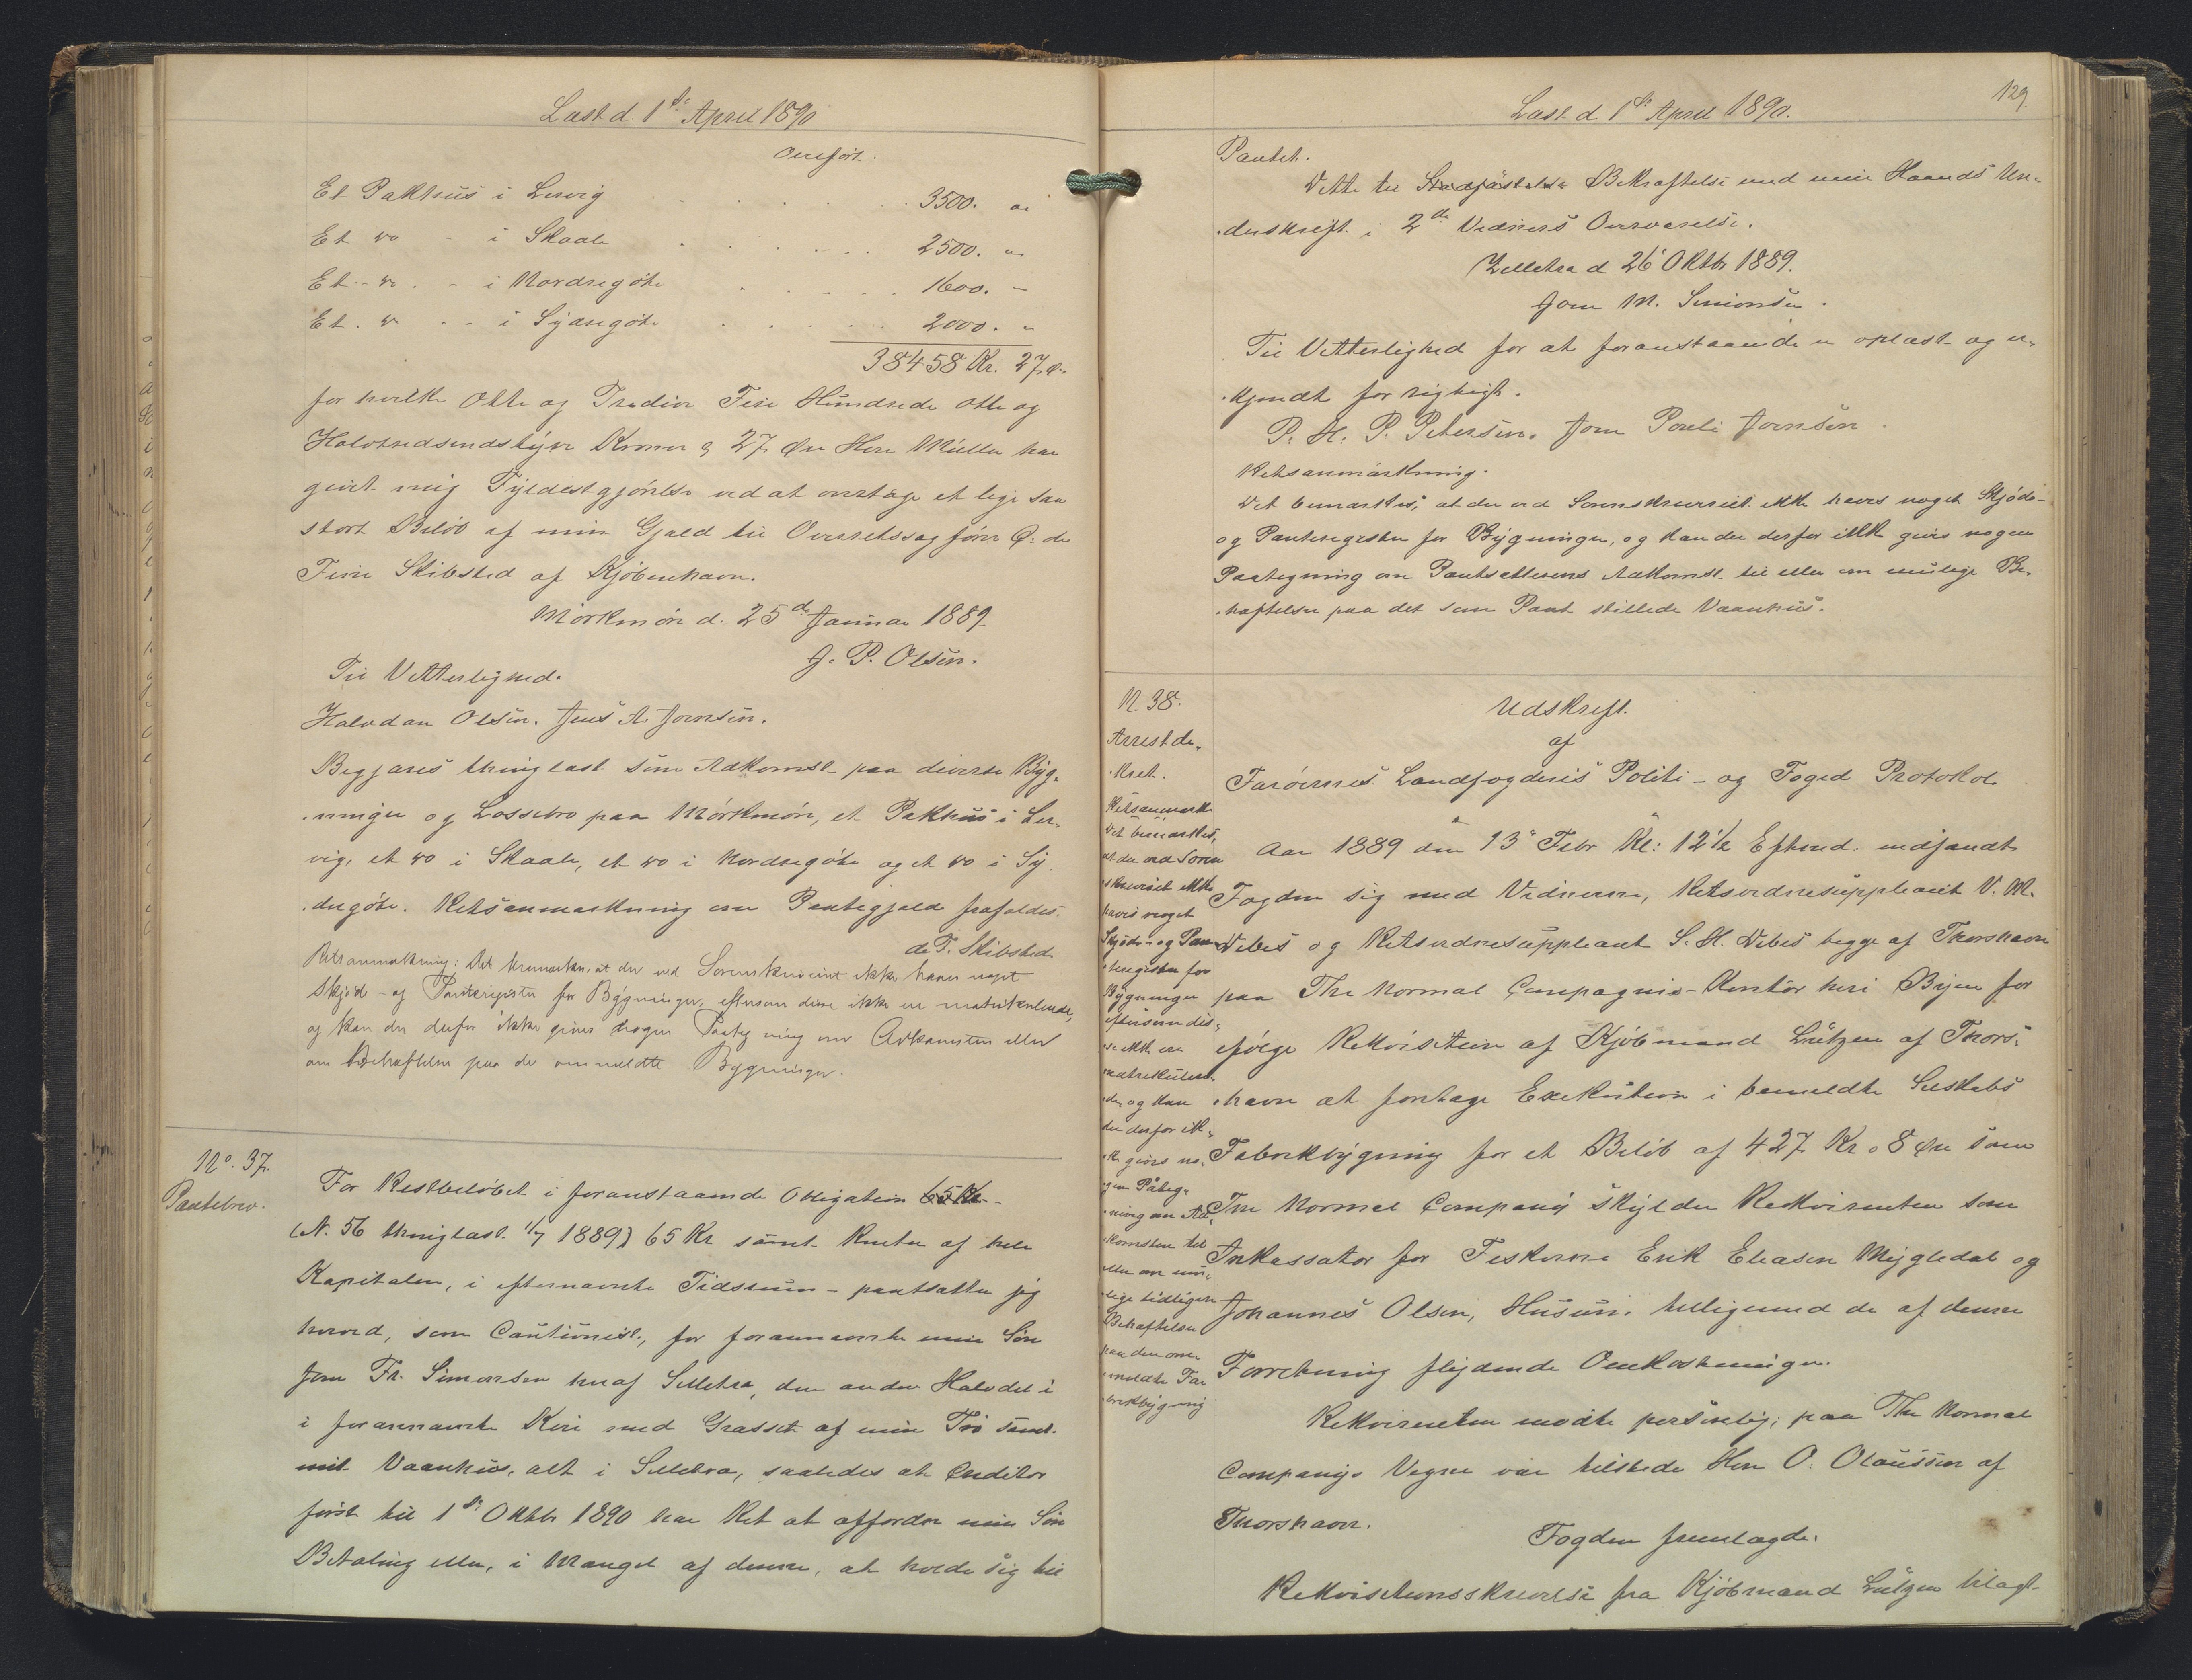 Læst d. 1ste April 1890
Overført.
Et Pakhus i Lervig 3500. "
Et do - i Skaale 2500. "
Et do - i Nordregøte 1600. -
Et do - i Sydregøte 2000. "
38458 Kr. 27 Ør
for hvilke Otte og Tredive Fire Hundrede otte og
Halvtredsindstyve Kroner & 27 Øre Herr Müller har
givet mig Fyldestgjørelse ved at overtage et lige saa
stort Beløb af min Gjæld til Overretssagfører C: de
Fine Skibsted af Kjøbenhavn.
Mørkmøre d. 25de Januar 1889
J. P. Olsen.
Til Vitterlighed.
Halvdan Olsen. Jens A. Joensen.
Begjæres thinglæst som Adkomst paa diverse Byg-
ninger og Lossebro paa Mørkmøre, et Pakhus i Ler-
vig, et do i Skaale, et do i Nordregøte og et do i Sy-
dregøte. Retsanmærkning om Pantegjæld frafaldes.
de F. Skibsted
Retsanmærkning: Det bemærkes, at der ved Sorenskriveriet ikke haves noget
Skjøde- og Panteregister for Bygninger, eftersom disse ikke ere matrikulerede,
og kan der derfor ikke gives nogen Paategning om Adkomsten eller
om Behæftelser paa de ommeldte Bygninger.
No. 37.
Pantebrev.
For Restbeløbet i foranstaaende Obligation 65 Kr.
(N. 56 thinglæst 1/7 1889) 65 Kr samt Renter af hele
Kapitalen, i efternævnte Tidsrum - pantsætter jeg
herved, som Cautionist, for forannævnte min Søn
Joen Fr. Simonsen her af Selletræ, den anden Halvdel i
i forannævnte Koe med Græsset af min Trø samt
mit Vaanhus, alt i Selletræ, saaledes at Creditor
først til 1ste Oktbr 1890 har Ret at affordre min Søn
Betaling eller, i Mangel af denne, at holde sig til
Læst d. 1ste April 1890.
129
Pantet.
Dette til Stadfæstelse Bekræftelse med min Haands Un-
derskrift i 2de Vidners Overværelse.
Zelletræ d 26 Oktbr 1889.
Joen M. Simonsen.
Til Vitterlighed for at foranstaaende er oplæst og er-
kjendt for rigtigt.
P. H. P. Petersen. Joen Pouli Joensen.
Retsanmærkning.
Det bemærkes, at der ved Sorenskriveriet ikke haves noget Skjøde-
og Panteregister for Bygninger, og kan der derfor ikke gives nogen
Paategning om Pantsætterens Adkomst til eller om mulige Be-
hæftelser paa det som Pant stillede Vaanhus.
N. 38.
Arrestde-
kret.
Retsanmærk
Det bemærkes,
at der ved Soren
skriveriet ikke
haves noget
Skjøde- og Pan-
teregister for
Bygninger
eftersom dis-
se ikke ere
matrikulere-
de, og kan
der derfor ik-
ke gives no-
gen Påteg-
ning om Ad-
komsten til
eller om mu-
lige tidligere
Behæftelser
paa den om-
meldte Fa-
brikbygning
Udskrift
af
Færøernes Landfogderis Politi- og Foged Protokol
Aar 1889 den 13 Febr Kl: 12½ Efterd. indfandt
Fogden sig med Vidnerne, Retsvidnesuppleant V. M.
Debes og Retsvidnesuppleant S. H. Debes begge af Thorshavn
paa The Normal Compagnis-Kontor heri Byen for
ifølge Rekvisition af Kjøbmand Lützen af Thors-
havn at foretage Exekution i bemeldte Selskabs
Fabrikbygning for et Beløb af 427 Kr. 8 Øre som
The Normal Company skylder Rekvirenten som
Inkassator for Fiskerne Erik Eliasen Mygledal og
Johannes Olsen, Husum. tilligemed de af denne
Forretning flydende Omkostninger.
Rekvirenten mødte personlig; paa The Normal
Companys Vegne var tilstede Herr O. Olaussen af
Thorshavn.
Fogden fremlagde.
Rekvisitionsskrivelse fra Kjøbmand Lützen tilagt